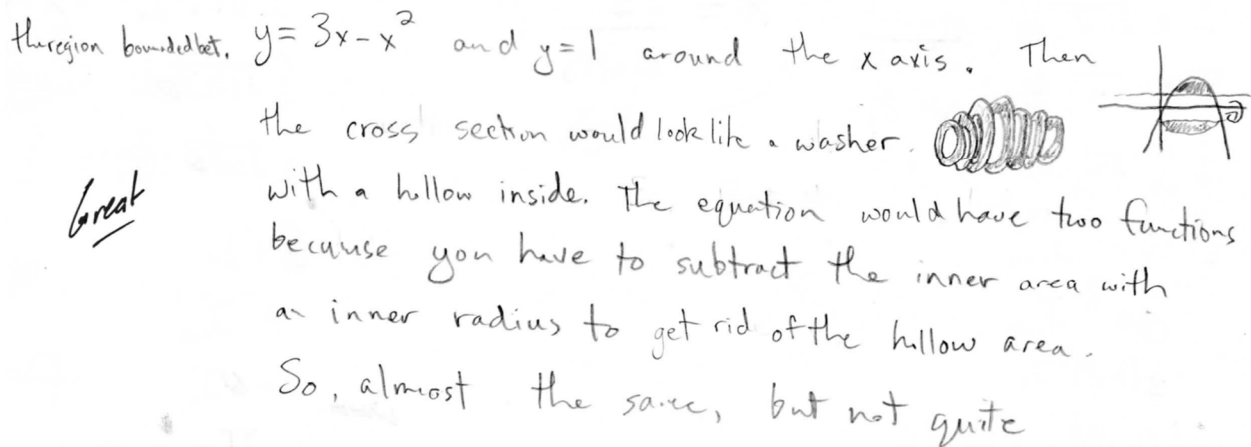 the region bounded bet. y = 3x - x² and y = 1 around the x axis. Then
the cross section would look like a washer.
with a hollow inside. The equation would have two functions
Great
because you have to subtract the inner area with
an inner radius to get rid of the hollow area.
So, almost the same, but not quite